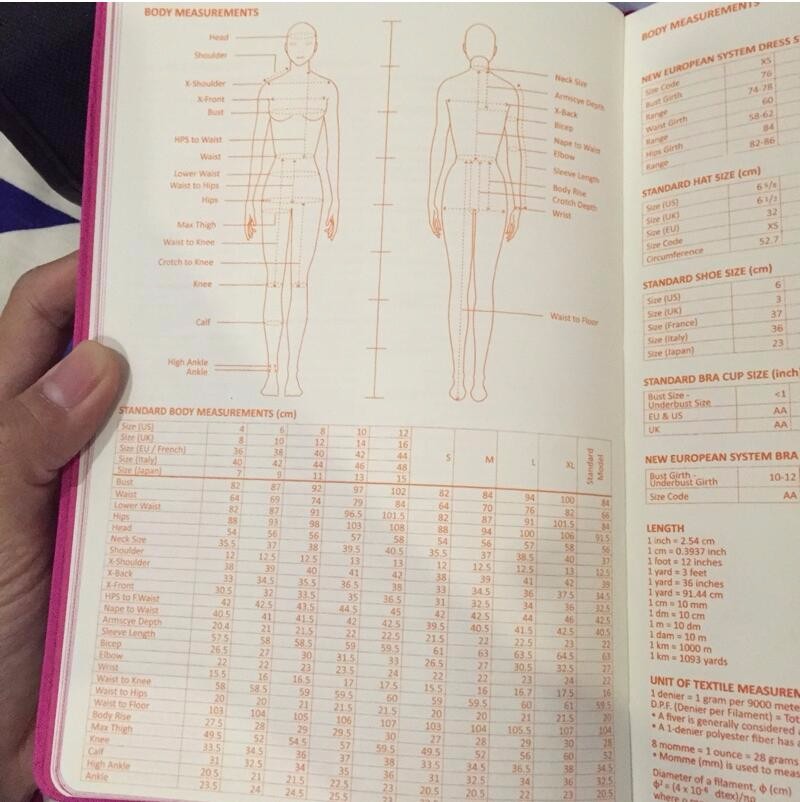 BODY MEASUREMENTS
Head
Shoulder
X-Shoulder
X-Front
Bust
HPS to Waist
Waist
Lower Waist
Waist to Hips
Hips
Max Thigh
Waist to Knee
Crotch to Knee
Knee
Calf
High Ankle
Ankle
Neck Size
Armscye Depth
X-Back
Bicep
Nape to Waist
Elbow
Sleeve Length
Body Rise
Crotch Depth
Wrist
Waist to Floor
STANDARD BODY MEASUREMENTS (cm)
Size (US) 4 6 8 10 12
Size (UK) 8 10 12 14 16
Size (EU / French) 36 38 40 42 44 S M L XL Standard Model
Size (Italy) 40 42 44 46 48
Size (Japan) 7 9 11 13 15
Bust 82 87 92 97 102 82 84 94 100 84
Waist 64 69 74 79 84 64 70 76 82 66
Lower Waist 82 87 91 96.5 101.5 82 87 91 101.5 84
Hips 88 93 98 103 108 88 94 100 106 91.5
Head 54 56 56 57 58 54 56 57 58 56
Neck Size 35.5 37 38 39.5 40.5 35.5 37 38.5 40 37
Shoulder 12 12.5 12.5 13 13 12 12.5 12.5 13 12.5
X-Shoulder 38 39 40 41 42 38 39 41 42 39
X-Back 33 34.5 35.5 36.5 38 33 34.5 36 37.5 34.5
X-Front 30.5 32 33.5 35 36.5 31 32.5 34 36 32.5
HPS to F.Waist 42 42.5 43.5 44.5 45 42 42.5 44 46 42.5
Nape to Waist 40.5 41 41.5 42 42.5 39.5 40.5 41.5 42.5 40.5
Armscye Depth 20.4 21 21.5 22 22.5 21.5 22 22.5 23 22
Sleeve Length 57.5 58 58.5 59 59.5 61 63 63.5 64.5 63
Bicep 26.5 27 30 31.5 33 26.5 27 30.5 32.5 27
Elbow 22 22 23 23.5 24 22 22 23 24 22
Wrist 15.5 16 16.5 17 17.5 15.5 16 16.7 17.5 16
Waist to Knee 58 58.5 59 59.5 60 59 59.5 60 61 59.5
Waist to Hips 20 20 21 21.5 21.5 20 20 21 21.5 20
Waist to Floor 103 104 105 106 107 103 104 105.5 107 104
Body Rise 27.5 28 29 29.5 30 27 28 29 30 28
Max Thigh 49.5 52 54.5 57 59.5 49.5 52 56 60 52
Knee 33.5 34.5 36 37 38 33.5 34.5 36.5 38 34.5
Calf 31 32.5 34 35 36 31 32.5 34 36 32.5
High Ankle 20.5 21 21.5 22.5 23 20.5 20.5 22 23 20.5
Ankle 23.5 24 24.5 25.5
BODY MEASUREMENTS
NEW EUROPEAN SYSTEM DRESS
Size Code XS
Bust Girth 76
Range 74-78
Waist Girth 60
Range 58-62
Hips Girth 84
Range 82-86
STANDARD HAT SIZE (cm)
Size (US) 6 5/8
Size (UK) 6 1/2
Size (EU) 32
Size Code XS
Circumference 52.7
STANDARD SHOE SIZE (cm)
Size (US) 6
Size (UK) 3
Size (France) 37
Size (Italy) 36
Size (Japan) 23
STANDARD BRA CUP SIZE (inch
Bust Size -
Underbust Size <1
EU & US AA
UK AA
NEW EUROPEAN SYSTEM BRA
Bust Girth -
Underbust Girth 10-12
Size Code AA
LENGTH
1 inch = 2.54 cm
1 cm = 0.3937 inch
1 foot = 12 inches
1 yard = 3 feet
1 yard = 36 inches
1 yard = 91.44 cm
1 cm = 10 mm
1 dm = 10 cm
1 m = 10 dm
1 dam = 10 m
1 km = 1000 m
1 km = 1093 yards
UNIT OF TEXTILE MEASUREM
1 denier = 1 gram per 9000 mete
D.P.F. (Denier per Filament) = Tot
• A fiver is generally considered
• A 1-denier polyester fiber has a
8 momme = 1 ounce = 28 grams
• Momme (mm) is used to meas
Diameter of a filament, ϕ (cm)
ϕ² = (4 x 10⁻⁶ dtex)/πρ